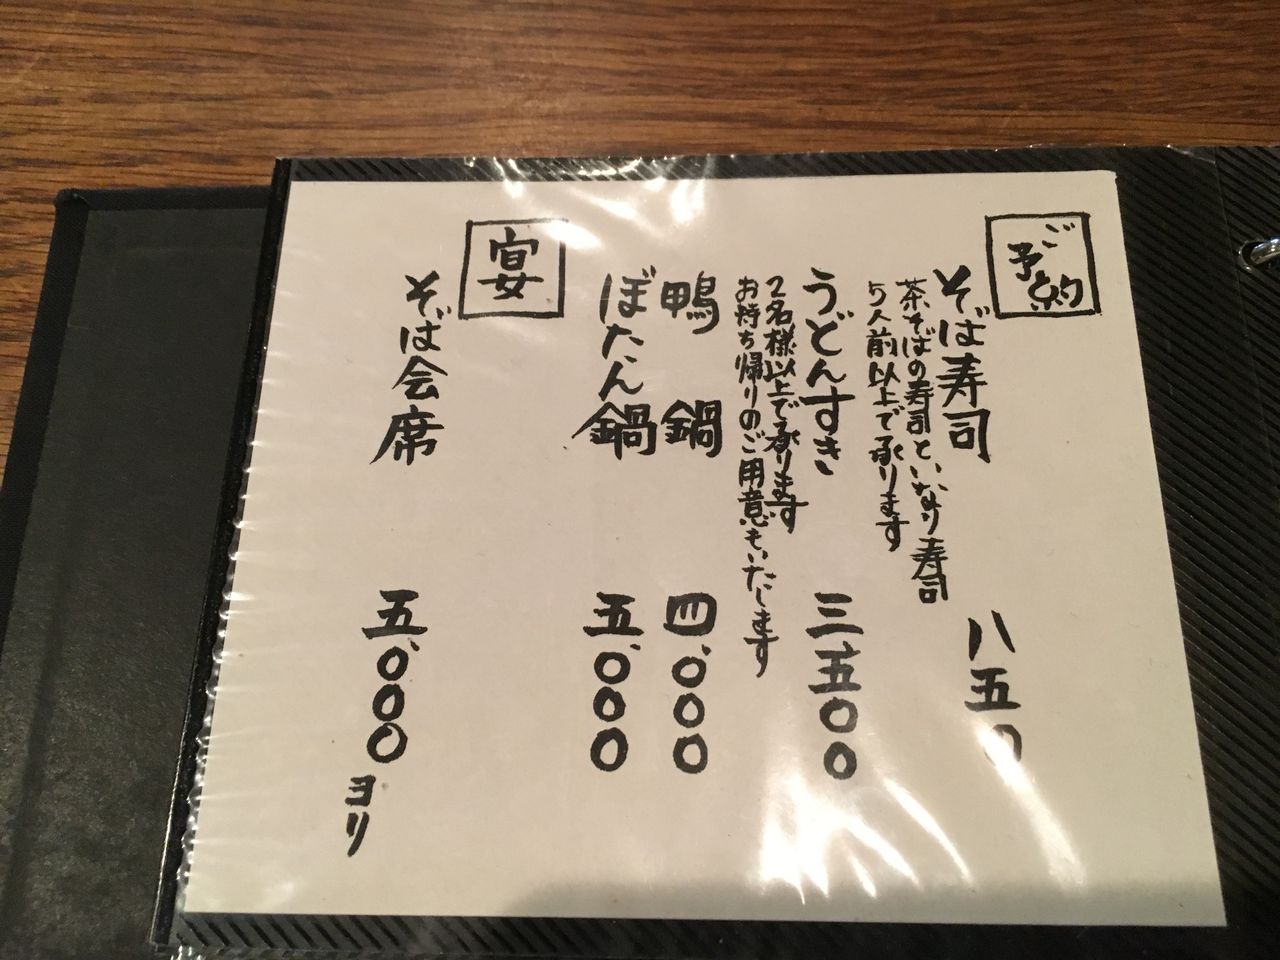 ご予約
そば寿司 八五〇
茶そばの寿司といなり寿司
5人前以上で承ります
うどんすき 三、五〇〇
2名様以上で承ります
お持ち帰りのご用意もいたします
鴨鍋 四、〇〇〇
ぼたん鍋 五、〇〇〇
宴
そば会席 五、〇〇〇ヨリ